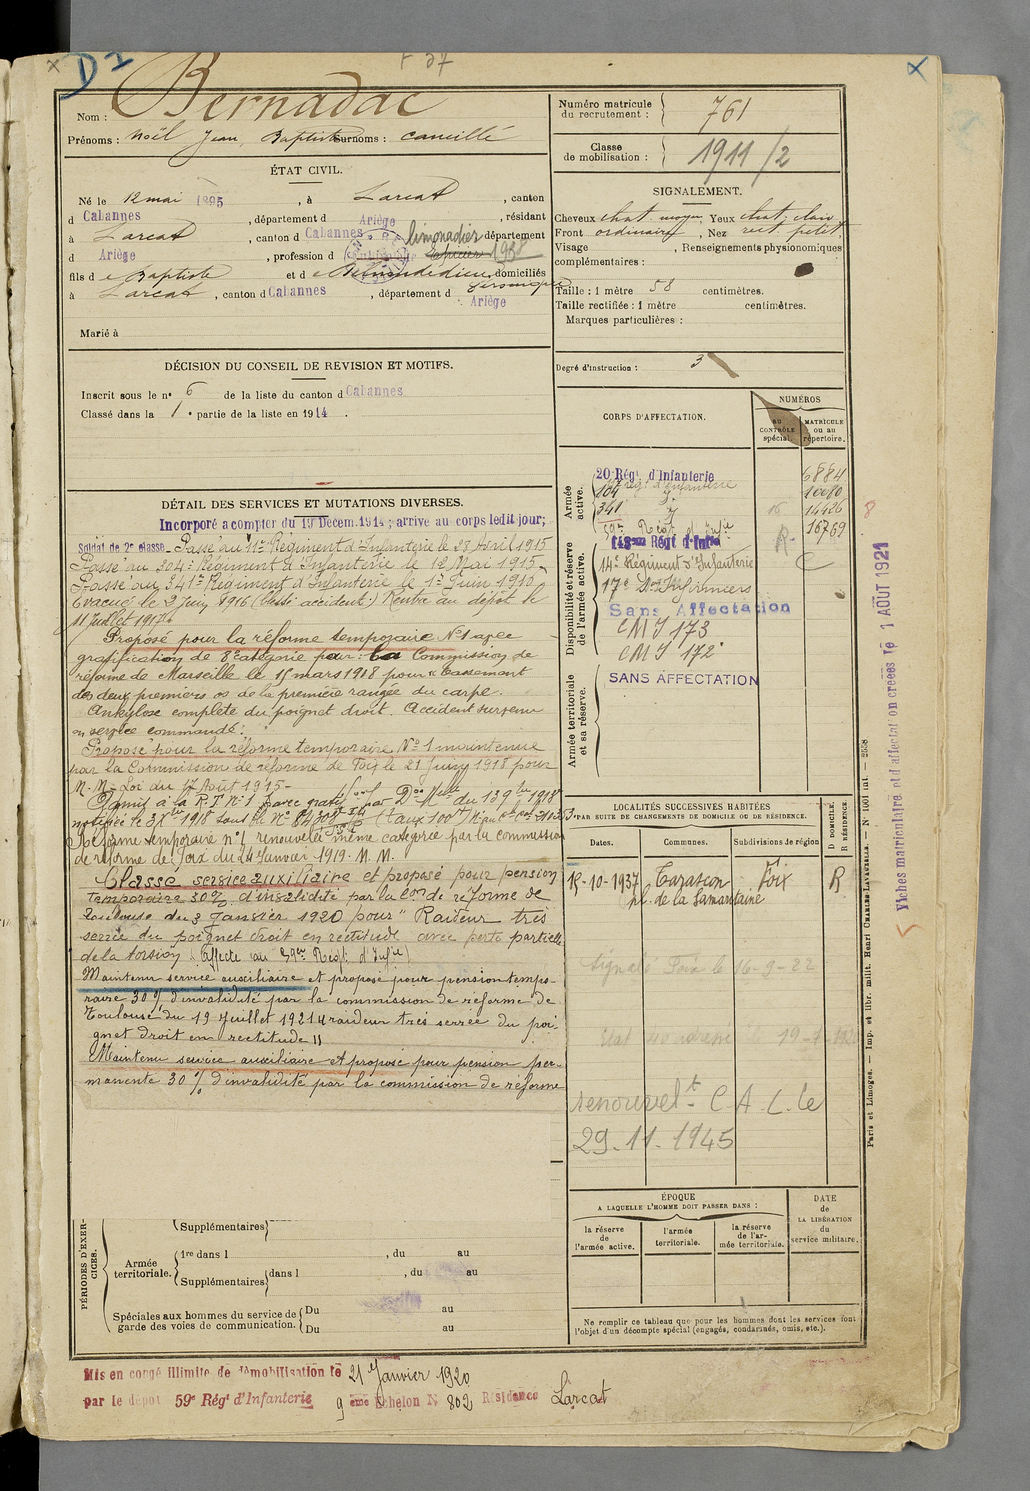 D 2
Nom : Bernadac
Prénoms : Noël Jean, Baptiste Surnoms : Camille
ÉTAT CIVIL.
Né le 12 mai 1895, à Larcat, canton
d Cabannes, département d Ariège, résidant
à Larcat, canton d Cabannes, département
limonadier
d Ariège, profession d 1938
fils d e Baptiste et d e domiciliés
à Larcat, canton d Cabannes, département d Ariège
Marié à
DÉCISION DU CONSEIL DE REVISION ET MOTIFS.
Inscrit sous le n° 6 de la liste du canton d Cabannes
Classé dans la 1e partie de la liste en 1914.
DÉTAIL DES SERVICES ET MUTATIONS DIVERSES.
Incorporé a compter du 19 Décem. 1914; arrive au corps ledit jour;
Soldat de 2e classe - Passé au Régiment d'Infanterie le 23 Avril 1915
Passé au 204e Régiment d'Infanterie le 12 Mai 1915
Passé au 341e Régiment d'Infanterie le 1er Juin 1916
Evacué le 2 Juin 1916 (blessé accident.) Rentré au dépôt le
11 Juillet 1917
Proposé pour la réforme temporaire N°1 avec
gratification de 8e catégorie par la Commission de
réforme de Marseille le 15 mars 1918 pour "tassement
des deux premiers os de la première rangée du carpe.
Ankylose complète du poignet droit. Accident survenu
en service commandé.
Proposé pour la réforme temporaire N° 1 maintenue
par la Commission de réforme de Foix le 21 Juin 1918 pour
M. M. Loi du Août 1915 -
Admis à la R.T. N° 1 avec gratif. par Don Melle du 139bre 1918
notifiée le 1918 sous le N°
Réforme temporaire n° 1 renouvelée même catégorie par la commission
de réforme de Foix du 24 Janvier 1919. M. M.
Classé service auxiliaire et proposé pour pension
temporaire 30% d'invalidité par la Con de réforme de
Toulouse du 3 Janvier 1920 pour "Raideur très
serrée du poignet droit en rectitude avec perte partielle
de la torsion (affecté au 59e Regt d'Infie)
Maintenu service auxiliaire et proposé pour pension tempo-
raire 30% d'invalidité par la commission de réforme de
Toulouse du 19 Juillet 1921 "raideur très serrée du poi-
gnet droit en rectitude"
Maintenu service auxiliaire et proposé pour pension per-
manente 30% d'invalidité par la commission de réforme
PÉRIODES D'EXER-
CICES.
Supplémentaires
Armée
territoriale.
1re dans l , du au
Supplémentaires dans l , du au
Spéciales aux hommes du service de
garde des voies de communication.
Du au
Du au
Mis en congé illimité de démobilisation le 21 Janvier 1920
par le dépôt 59e Régt d'Infanterie 9 ème Echelon N° 802 Résidence Larcat
Numéro matricule
du recrutement : 761
Classe
de mobilisation : 1911/2
SIGNALEMENT.
Cheveux chat. moyen, Yeux chat. clair
Front ordinaire, Nez rect. petit
Visage , Renseignements physionomiques
complémentaires :
Taille : 1 mètre 58 centimètres.
Taille rectifiée : 1 mètre centimètres.
Marques particulières :
Degré d'instruction : 3
CORPS D'AFFECTATION.
NUMÉROS
AU
CONTRÔLE
spécial.
MATRICULE
ou au
répertoire.
Armée
active.
20e Régt d'Infanterie 6884
régt d'Infanterie 10080
341e 14426
59e Regt d'Infie 16769
Disponibilité et réserve
de l'armée active.
Régt d'Infie
14e Régiment d'Infanterie
17e Son Infirmiers
Sans Affectation
CMI 173
CMI 172
Armée territoriale
et sa réserve.
SANS AFFECTATION
LOCALITÉS SUCCESSIVES HABITÉES
PAR SUITE DE CHANGEMENTS DE DOMICILE OU DE RÉSIDENCE.
D DOMICILE.
R RÉSIDENCE.
Dates. Communes. Subdivisions de région
15-10-1937 Tarascon Foix R
pl. de la Samaritaine
Signalé Foix le 16-9-22
renouvelt C A L le
29.11.1945
ÉPOQUE
A LAQUELLE L'HOMME DOIT PASSER DANS :
la réserve
de
l'armée active.
l'armée
territoriale.
la réserve
de l'ar-
mée territoriale.
DATE
de
LA LIBÉRATION
du
service militaire.
Ne remplir ce tableau que pour les hommes dont les services font
l'objet d'un décompte spécial (engagés, condamnés, omis, etc.).
Paris et Limoges. — Imp. et libr. milit. Henri CHARLES-LAVAUZELLE. — N° 1001 int. — 2558
Fiches matriculaire et d'affectation créées le 1 AOUT 1921